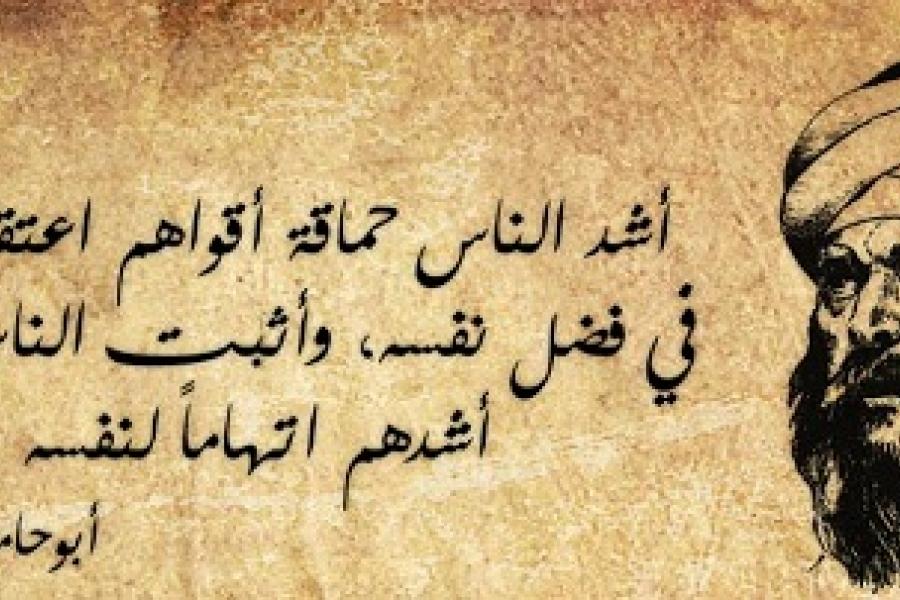 أشد الناس حماقة أقواهم اعتق
في فضل نفسه، وأثبت النا
أشدهم اتهاماً لنفسه
أبوحام